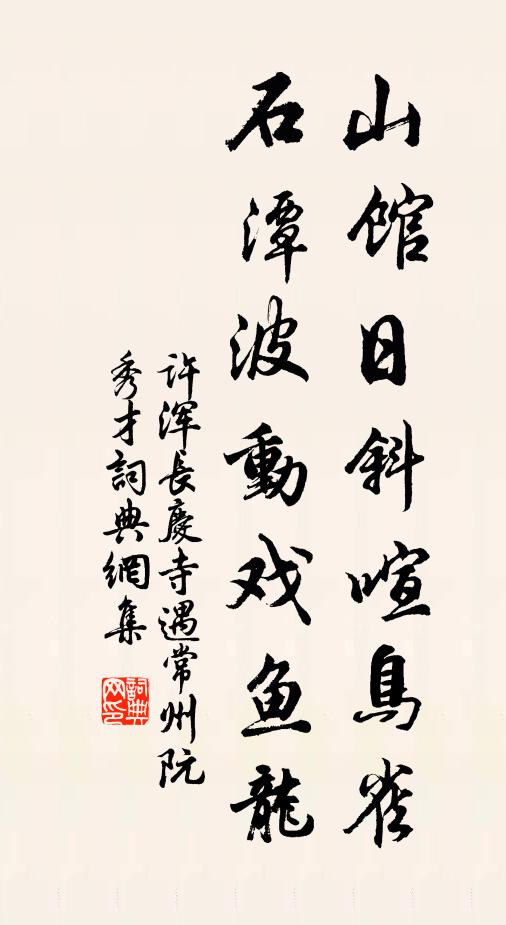 山館日斜喧鳥雀
石潭波動戏鱼龍
许渾長慶寺遇常州阮
秀才詞典網集
詞典
网印